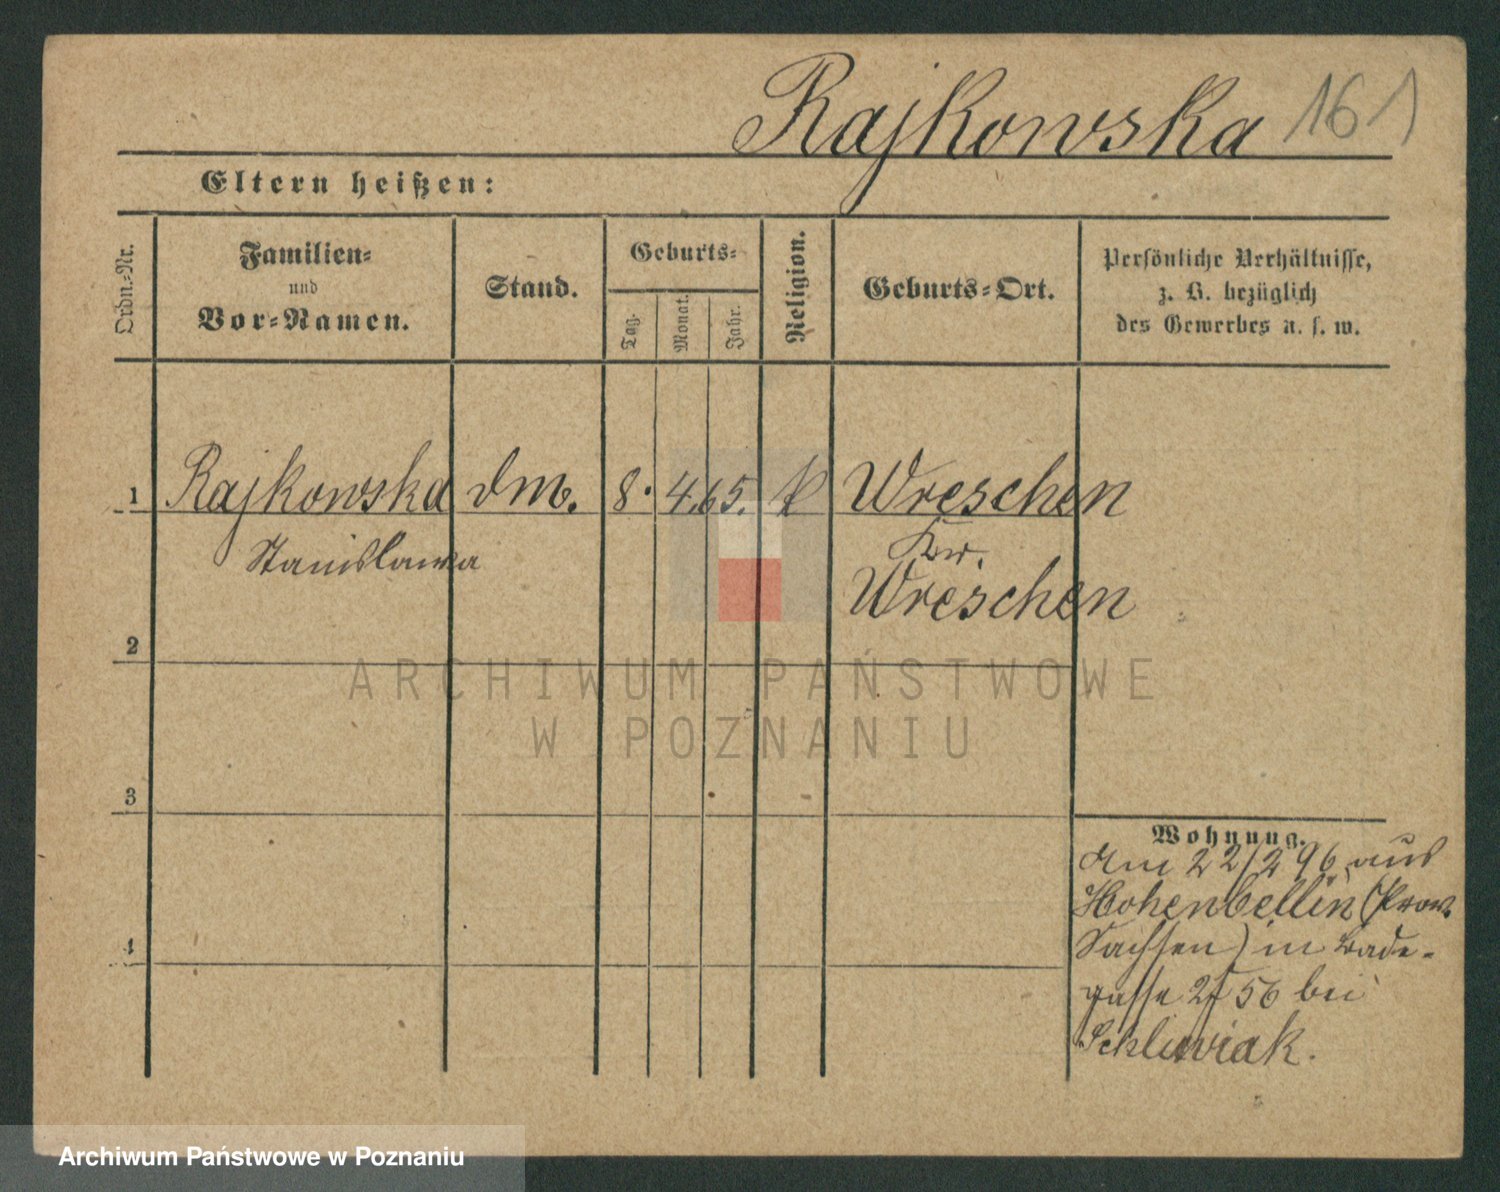 Rajkowska 161
Eltern heißen:
Ordn.-Nr.
Familien-
und
Vor-Namen.
Stand.
Geburts-
Tag.
Monat.
Jahr.
Religion.
Geburts-Ort.
Persönliche Verhältnisse,
z. B. bezüglich
des Gewerbes u. s. w.
1 Rajkowska 8. 4. 65. k Wreschen
Stanislawa Kr.
Wreschen
2
ARCHIWUM PAŃSTWOWE
W POZNANIU
3
Wohnung.
Am 22/2 96 aus
Hohenbellin (Prov.
Sachsen) in Bade-
4
gasse 256 bei
Archiwum Państwowe w Poznaniu